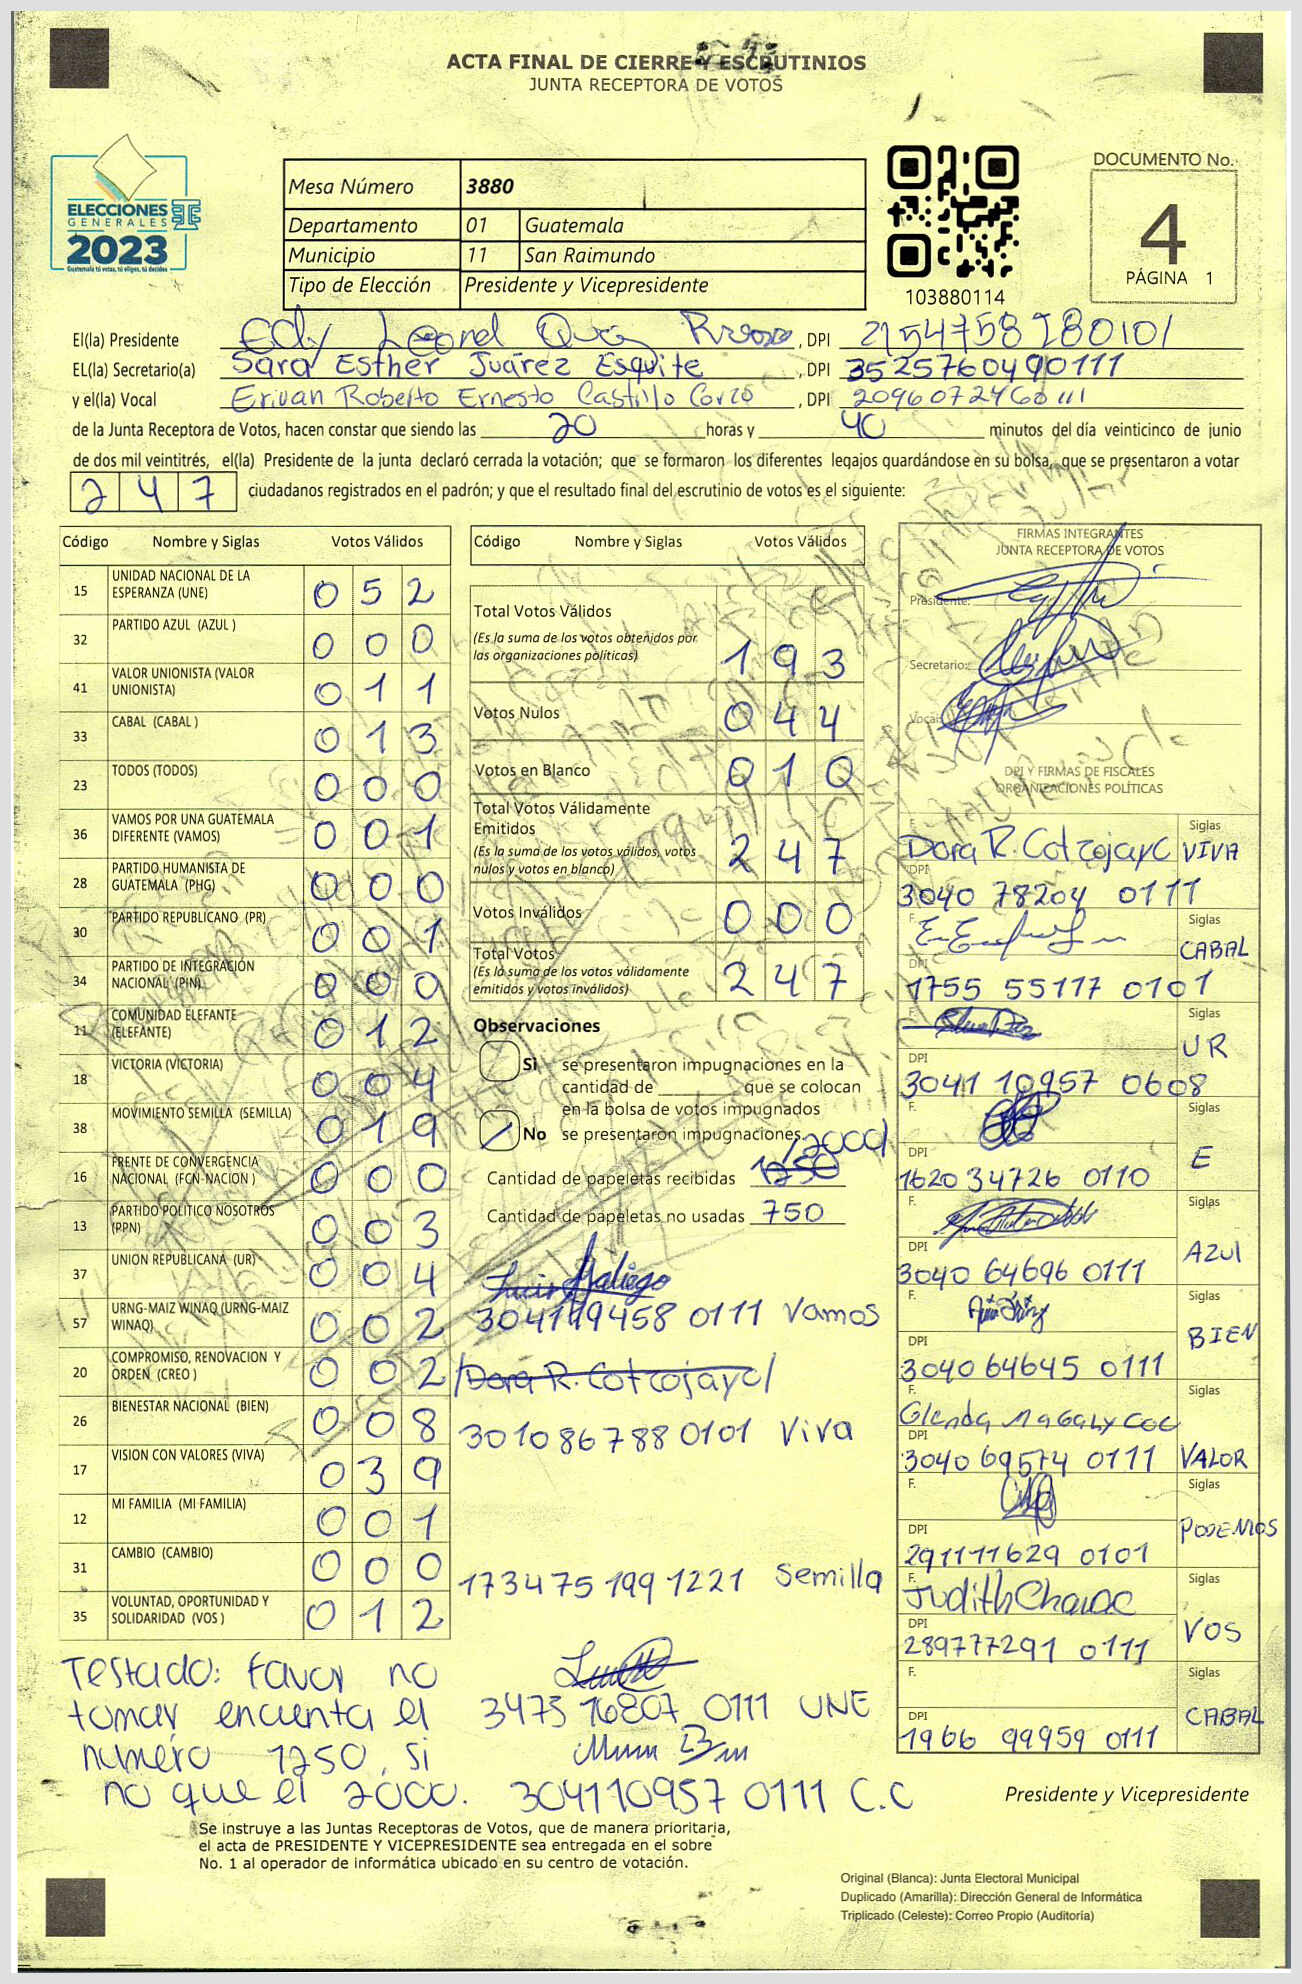 ACTA FINAL DE CIERRE Y ESCRUTINIOS
JUNTA RECEPTORA DE VOTOS
ELECCIONES
GENERALES
2023
Guatemala tú votas, tú eliges, tú decides
Mesa Número 3880
Departamento 01 Guatemala
Municipio 11 San Raimundo
Tipo de Elección Presidente y Vicepresidente
103880114
DOCUMENTO No.
4
PÁGINA 1
El(la) Presidente Edy Leonel , DPI
EL(la) Secretario(a) Sara Esther Juárez Esquite , DPI 3525760490111
y el(la) Vocal Erivan Roberto Ernesto Castillo Corzo , DPI 2096072460111
de la Junta Receptora de Votos, hacen constar que siendo las 20 horas y 40 minutos del día veinticinco de junio
de dos mil veintitrés, el(la) Presidente de la junta declaró cerrada la votación; que se formaron los diferentes legajos guardándose en su bolsa, que se presentaron a votar
247 ciudadanos registrados en el padrón; y que el resultado final del escrutinio de votos es el siguiente:
Código Nombre y Siglas Votos Válidos
15 UNIDAD NACIONAL DE LA ESPERANZA (UNE) 052
32 PARTIDO AZUL (AZUL ) 000
41 VALOR UNIONISTA (VALOR UNIONISTA) 011
33 CABAL (CABAL ) 013
23 TODOS (TODOS) 000
36 VAMOS POR UNA GUATEMALA DIFERENTE (VAMOS) 001
28 PARTIDO HUMANISTA DE GUATEMALA (PHG) 000
30 PARTIDO REPUBLICANO (PR) 001
34 PARTIDO DE INTEGRACIÓN NACIONAL (PIN) 000
11 COMUNIDAD ELEFANTE (ELEFANTE) 012
18 VICTORIA (VICTORIA) 004
38 MOVIMIENTO SEMILLA (SEMILLA) 019
16 FRENTE DE CONVERGENCIA NACIONAL (FCN-NACION ) 000
13 PARTIDO POLITICO NOSOTROS (PPN) 003
37 UNION REPUBLICANA (UR) 004
57 URNG-MAIZ WINAQ (URNG-MAIZ WINAQ) 002
20 COMPROMISO, RENOVACION Y ORDEN (CREO ) 002
26 BIENESTAR NACIONAL (BIEN) 008
17 VISION CON VALORES (VIVA) 039
12 MI FAMILIA (MI FAMILIA) 001
31 CAMBIO (CAMBIO) 000
35 VOLUNTAD, OPORTUNIDAD Y SOLIDARIDAD (VOS ) 012
Testado: favor no
tomar encuenta el
número 1250, si
no que el 2000.
Código Nombre y Siglas Votos Válidos
Total Votos Válidos
(Es la suma de los votos obtenidos por
las organizaciones políticas) 193
Votos Nulos 044
Votos en Blanco 010
Total Votos Válidamente
Emitidos
(Es la suma de los votos válidos, votos
nulos y votos en blanco) 247
Votos Inválidos 000
Total Votos
(Es la suma de los votos válidamente
emitidos y votos inválidos) 247
Observaciones
Si se presentaron impugnaciones en la
cantidad de que se colocan
en la bolsa de votos impugnados
No se presentaron impugnaciones.
Cantidad de papeletas recibidas 1250 /2000/
Cantidad de papeletas no usadas 750
0111 Vamos
/Dora R. Cotzojayc/
3010867880101 Viva
1734751991221 Semilla
0111 UNE
3041109570111 C.C
FIRMAS INTEGRANTES
JUNTA RECEPTORA DE VOTOS
Presidente:
Secretario:
Vocal:
DPI Y FIRMAS DE FISCALES
ORGANIZACIONES POLÍTICAS
F. Dora R. Cotzojayc Siglas VIVA
DPI 3040 78204 0111
F. Siglas CABAL
DPI 1755 55117 0101
F. Siglas UR
DPI 3041 10957 0608
F. Siglas E
DPI 1620 34726 0110
F. Siglas AZUL
DPI 3040 64696 0111
F. Siglas BIEN
DPI 3040 64645 0111
F. Glenda Magaly Coc Siglas VALOR
DPI 3040 69574 0111
F. Siglas PODEMOS
DPI 291111629 0101
F. Judith Siglas VOS
DPI 289777291 0111
F. Siglas CABAL
DPI 1966 99959 0111
Presidente y Vicepresidente
Se instruye a las Juntas Receptoras de Votos, que de manera prioritaria,
el acta de PRESIDENTE Y VICEPRESIDENTE sea entregada en el sobre
No. 1 al operador de informática ubicado en su centro de votación.
Original (Blanca): Junta Electoral Municipal
Duplicado (Amarilla): Dirección General de Informática
Triplicado (Celeste): Correo Propio (Auditoría)